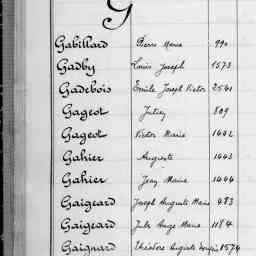 G
Gabillard Pierre Marie 990
Gadby Louis Joseph 1573
Gadebois Emile Joseph Victor 2541
Gageot Julien 809
Gageot Victor Marie 1442
Gahier Auguste 1443
Gahier Jean Marie 1444
Gaigeard Joseph Auguste Marie 483
Gaigeard Jules Ange Marie 1184
Gaignard Théodore Auguste 1574